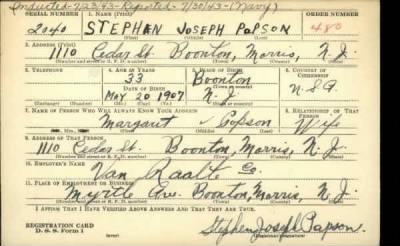 Inducted-7/23/43-Reported-7/30/43-(Navy)
SERIAL NUMBER 1. NAME (Print) ORDER NUMBER
2040 STEPHEN JOSEPH PAPSON 480
(First) (Middle) (Last)
2. ADDRESS (Print)
1110 Cedar St. Boonton, Morris, N.J.
3. TELEPHONE 4. AGE IN YEARS 5. PLACE OF BIRTH 6. COUNTRY OF CITIZENSHIP
33 Boonton
DATE OF BIRTH
May 20 1907 N.J. U.S.A.
(Exchange) (Number) (Mo.) (Day) (Yr.) (State or country)
7. NAME OF PERSON WHO WILL ALWAYS KNOW YOUR ADDRESS 8. RELATIONSHIP OF THAT PERSON
Margaret Papson Wife
(Mr., Mrs., Miss) (First) (Middle) (Last)
9. ADDRESS OF THAT PERSON
1110 Cedar St. Boonton, Morris, N.J.
10. EMPLOYER'S NAME
Van Raalte Co.
11. PLACE OF EMPLOYMENT OR BUSINESS
Myrtle Ave. Boonton, Morris, N.J.
I AFFIRM THAT I HAVE VERIFIED ABOVE ANSWERS AND THAT THEY ARE TRUE.
REGISTRATION CARD
D. S. S. Form 1
Stephen Joseph Papson.